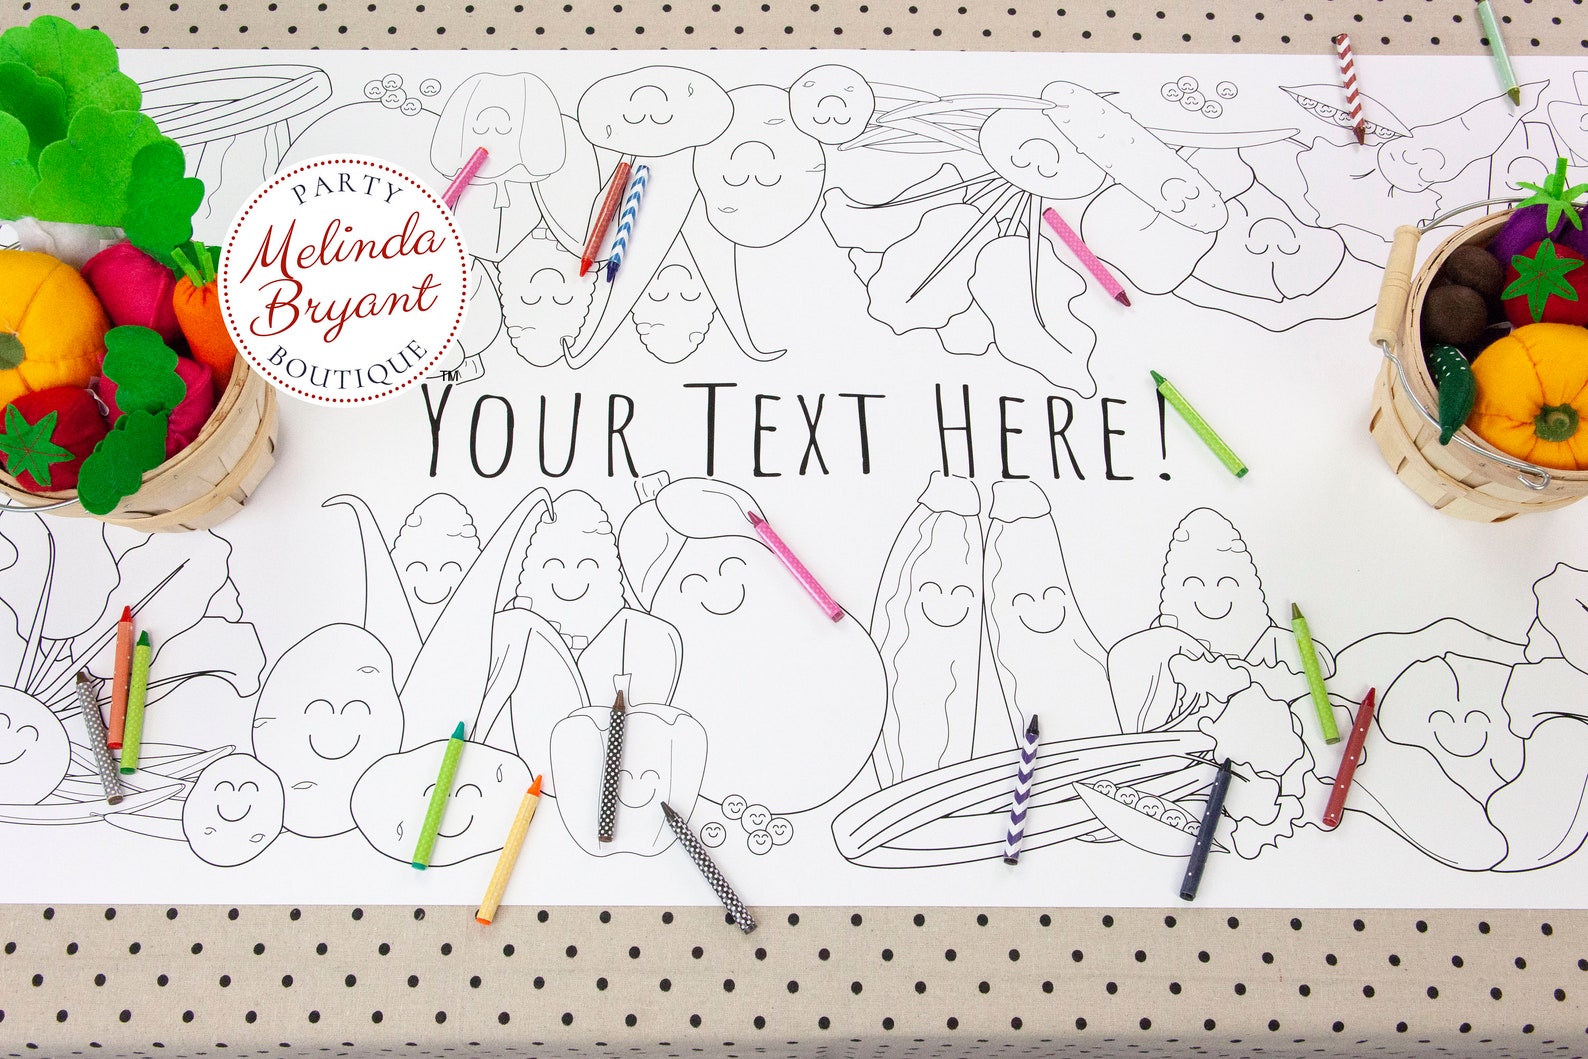 PARTY
Melinda
Bryant
BOUTIQUE
TM
YOUR TEXT HERE!